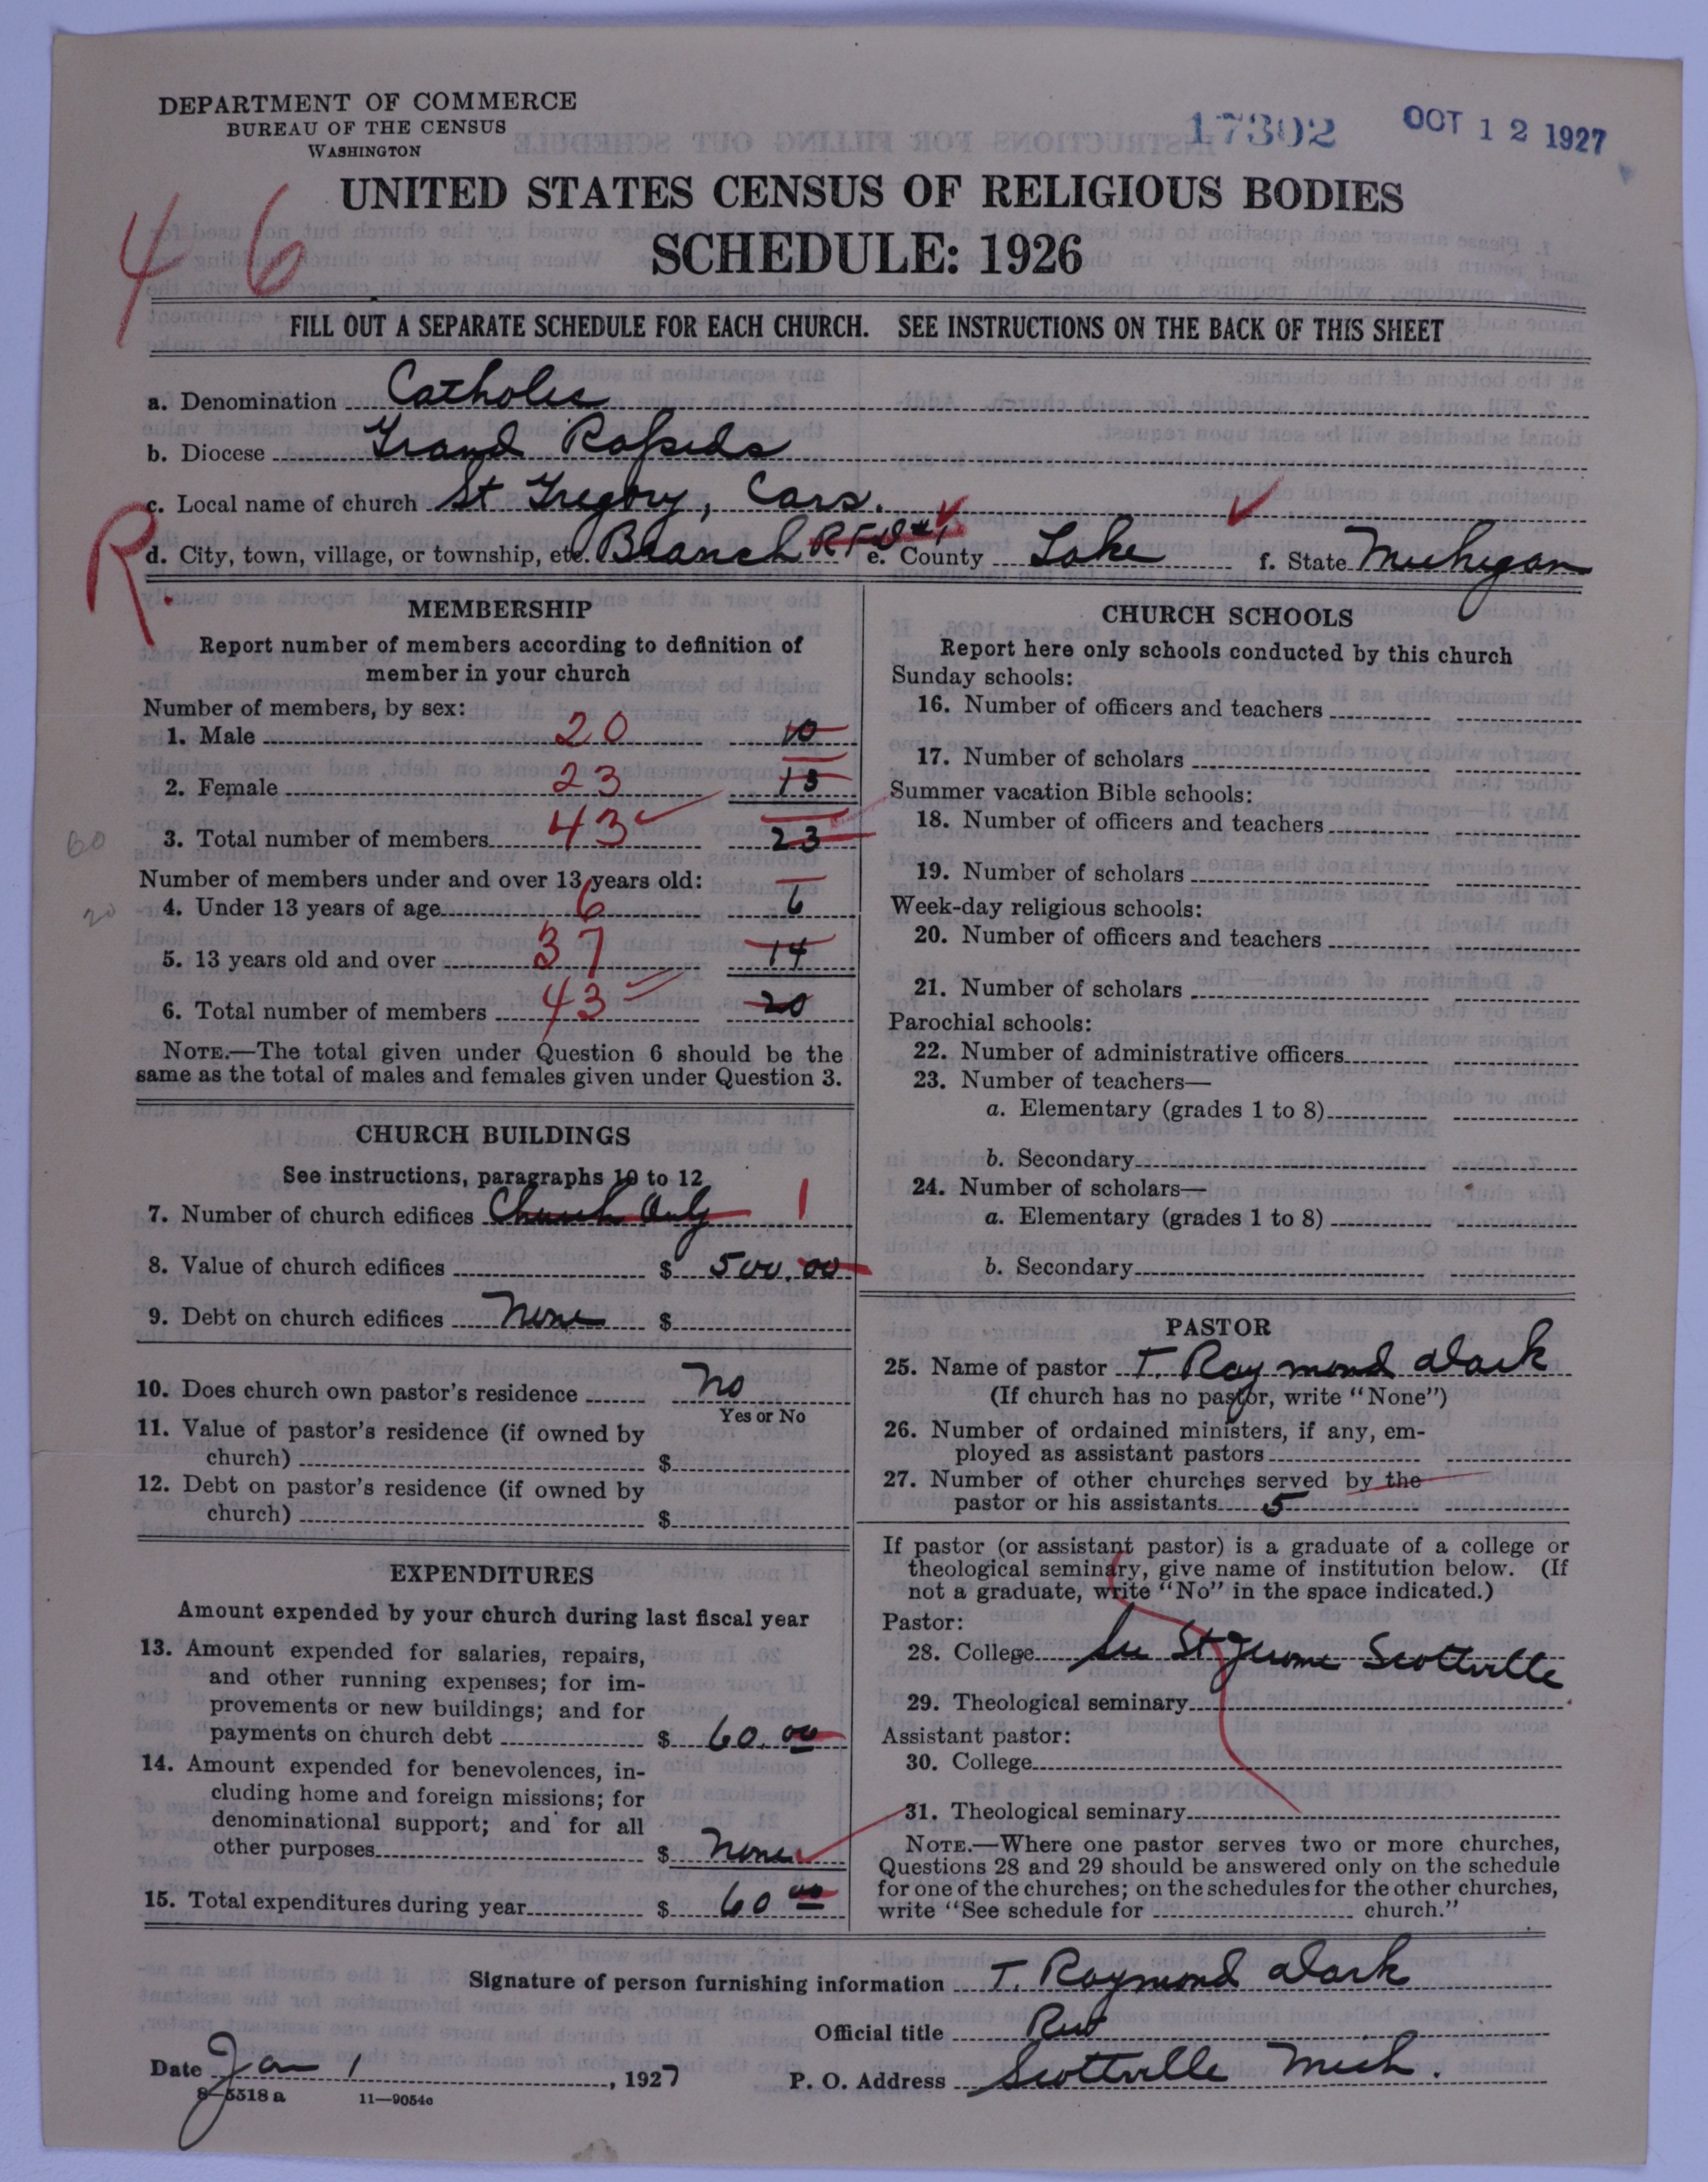 DEPARTMENT OF COMMERCE
BUREAU OF THE CENSUS
WASHINGTON
17302
OCT 12 1927
UNITED STATES CENSUS OF RELIGIOUS BODIES
SCHEDULE: 1926
4 6
FILL OUT A SEPARATE SCHEDULE FOR EACH CHURCH. SEE INSTRUCTIONS ON THE BACK OF THIS SHEET
a. Denomination Catholic
b. Diocese Grand Rapids
c. Local name of church St Gregory, Cars.
R.
d. City, town, village, or township, etc. Branch RFD #1 e. County Lake f. State Michigan
MEMBERSHIP
Report number of members according to definition of
member in your church
Number of members, by sex:
1. Male 20 10
2. Female 23 13
3. Total number of members 43 23
60
Number of members under and over 13 years old:
4. Under 13 years of age 6 6
20
5. 13 years old and over 37 14
6. Total number of members 43 20
NOTE.—The total given under Question 6 should be the
same as the total of males and females given under Question 3.
CHURCH BUILDINGS
See instructions, paragraphs 10 to 12
7. Number of church edifices Church Only 1
8. Value of church edifices $ 500.00
9. Debt on church edifices None $
10. Does church own pastor's residence No
Yes or No
11. Value of pastor's residence (if owned by
church) $
12. Debt on pastor's residence (if owned by
church) $
EXPENDITURES
Amount expended by your church during last fiscal year
13. Amount expended for salaries, repairs,
and other running expenses; for im-
provements or new buildings; and for
payments on church debt $ 60.00
14. Amount expended for benevolences, in-
cluding home and foreign missions; for
denominational support; and for all
other purposes $ None
15. Total expenditures during year $ 60 00
CHURCH SCHOOLS
Report here only schools conducted by this church
Sunday schools:
16. Number of officers and teachers
17. Number of scholars
Summer vacation Bible schools:
18. Number of officers and teachers
19. Number of scholars
Week-day religious schools:
20. Number of officers and teachers
21. Number of scholars
Parochial schools:
22. Number of administrative officers
23. Number of teachers—
a. Elementary (grades 1 to 8)
b. Secondary
24. Number of scholars—
a. Elementary (grades 1 to 8)
b. Secondary
PASTOR
25. Name of pastor T. Raymond Dark
(If church has no pastor, write "None")
26. Number of ordained ministers, if any, em-
ployed as assistant pastors
27. Number of other churches served by the
pastor or his assistants 5
If pastor (or assistant pastor) is a graduate of a college or
theological seminary, give name of institution below. (If
not a graduate, write "No" in the space indicated.)
Pastor:
28. College See St Jerome Scottville
29. Theological seminary
Assistant pastor:
30. College
31. Theological seminary
NOTE.—Where one pastor serves two or more churches,
Questions 28 and 29 should be answered only on the schedule
for one of the churches; on the schedules for the other churches,
write "See schedule for church."
Signature of person furnishing information T. Raymond Dark
Official title Rev
Date Jan 1, 1927 P. O. Address Scottville Mich.
8-5518 a 11—9054c